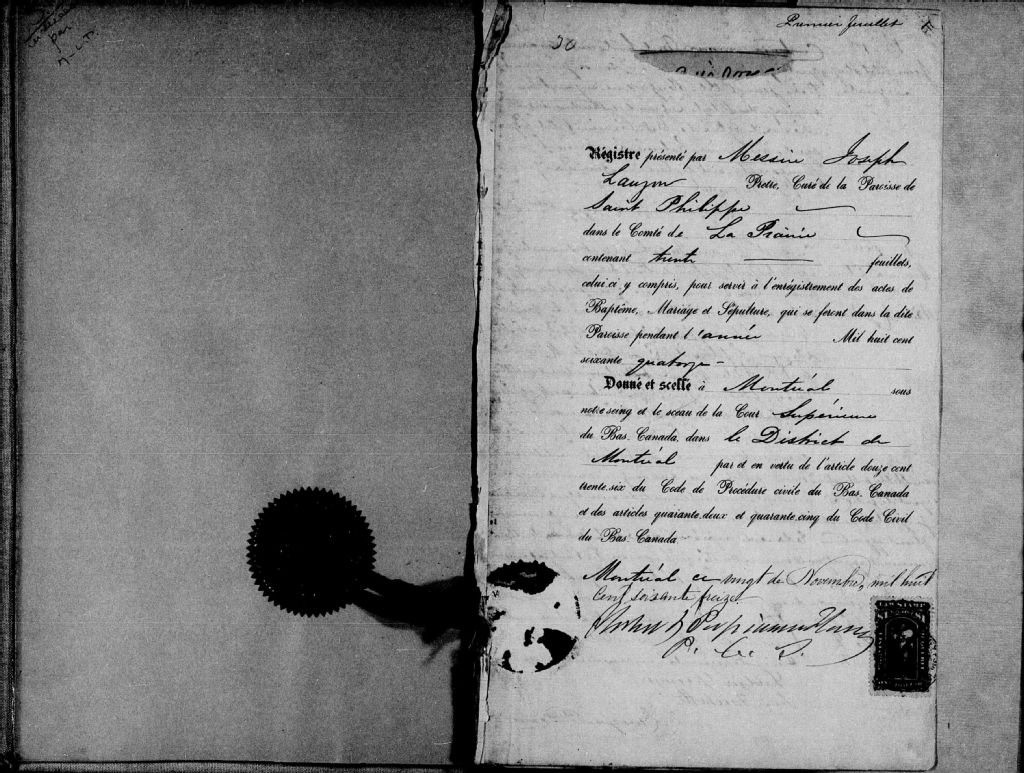 par
Premier feuillet
30
Régistre présenté par Messire Joseph
Lauzon Pretre, Curé de la Paroisse de
Saint Philippe
dans le Comté de La Prairie
contenant trente feuillets,
celui ci y compris, pour servir à l'enrégistrement des actes de
Baptême, Mariage et Sépulture, qui se feront dans la dite
Paroisse pendant l'année Mil huit cent
soixante quatorze
Donné et scellé à Montréal sous
notre seing et le sceau de la Cour Supérieure
du Bas-Canada, dans le District de
Montréal par et en vertu de l'article douze cent
trente-six du Code de Procédure civile du Bas-Canada
et des articles quarante-deux et quarante-cinq du Code Civil
du Bas-Canada
Montréal ce vingt de Novembre, mil huit
cent soixante treize
LAW STAMP
$1